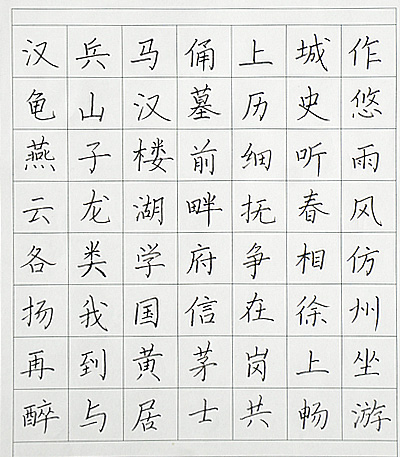 汉兵马俑上城作
龟山汉墓历史悠
燕子楼前细听雨
云龙湖畔抚春风
各类学府争相仿
扬我国信在徐州
再到黄茅岗上坐
醉与居士共畅游